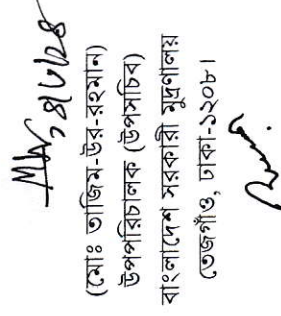 ৪/৮/২৪
(মোঃ তাজিম-উর-রহমান)
উপপরিচালক (উপসচিব)
বাংলাদেশ সরকারী মুদ্রণালয়
তেজগাঁও, ঢাকা-১২০৮।